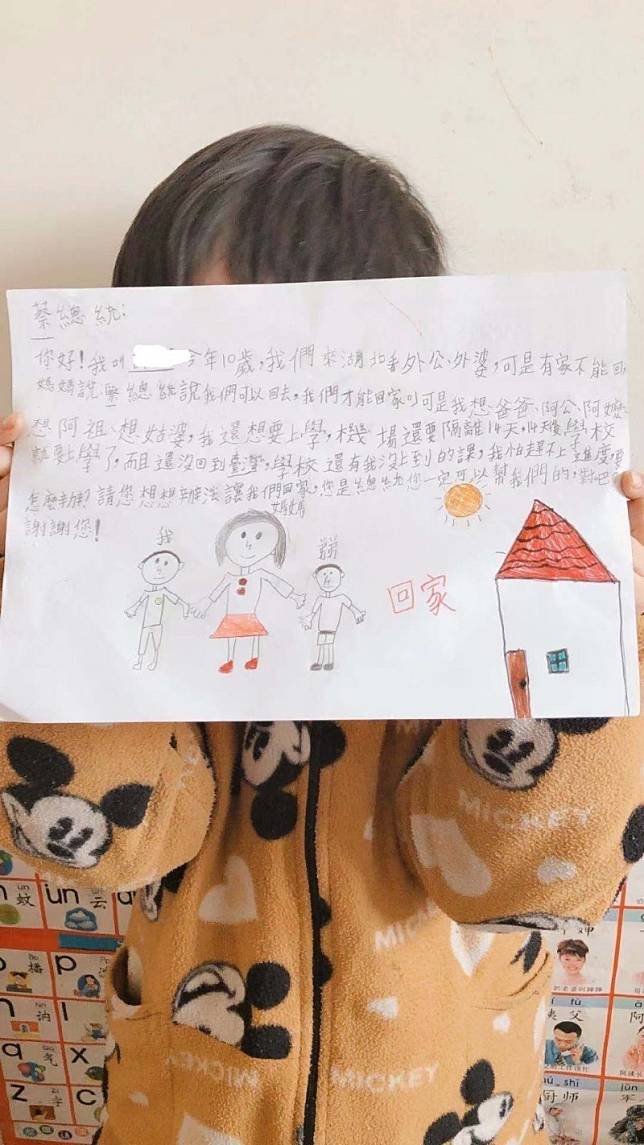 蔡總統:
你好!我叫 今年10歲,我們來湖北看外公、外婆,可是有家不能回,
媽媽說蔡總統說我們可以回去,我們才能回家,可是我想爸爸、阿公、阿嬤,
想阿祖、想姑婆,我還想要上學,機場還要隔離14天,14天後學校
就要上學了,而且還沒回到臺灣,學校還有我沒上到的課,我怕趕不上進度,
怎麼辦?請您想想辦法讓我們回家,您是總統你一定可以幫我們的,對吧?
謝謝您!
我
媽媽
弟弟
回家
MICKEY
MICKEY
MICKEY
ün
蚊
ün
云
p
l
q
气
x
z
字
c
fū
夫
shī
厨师
jūn
军